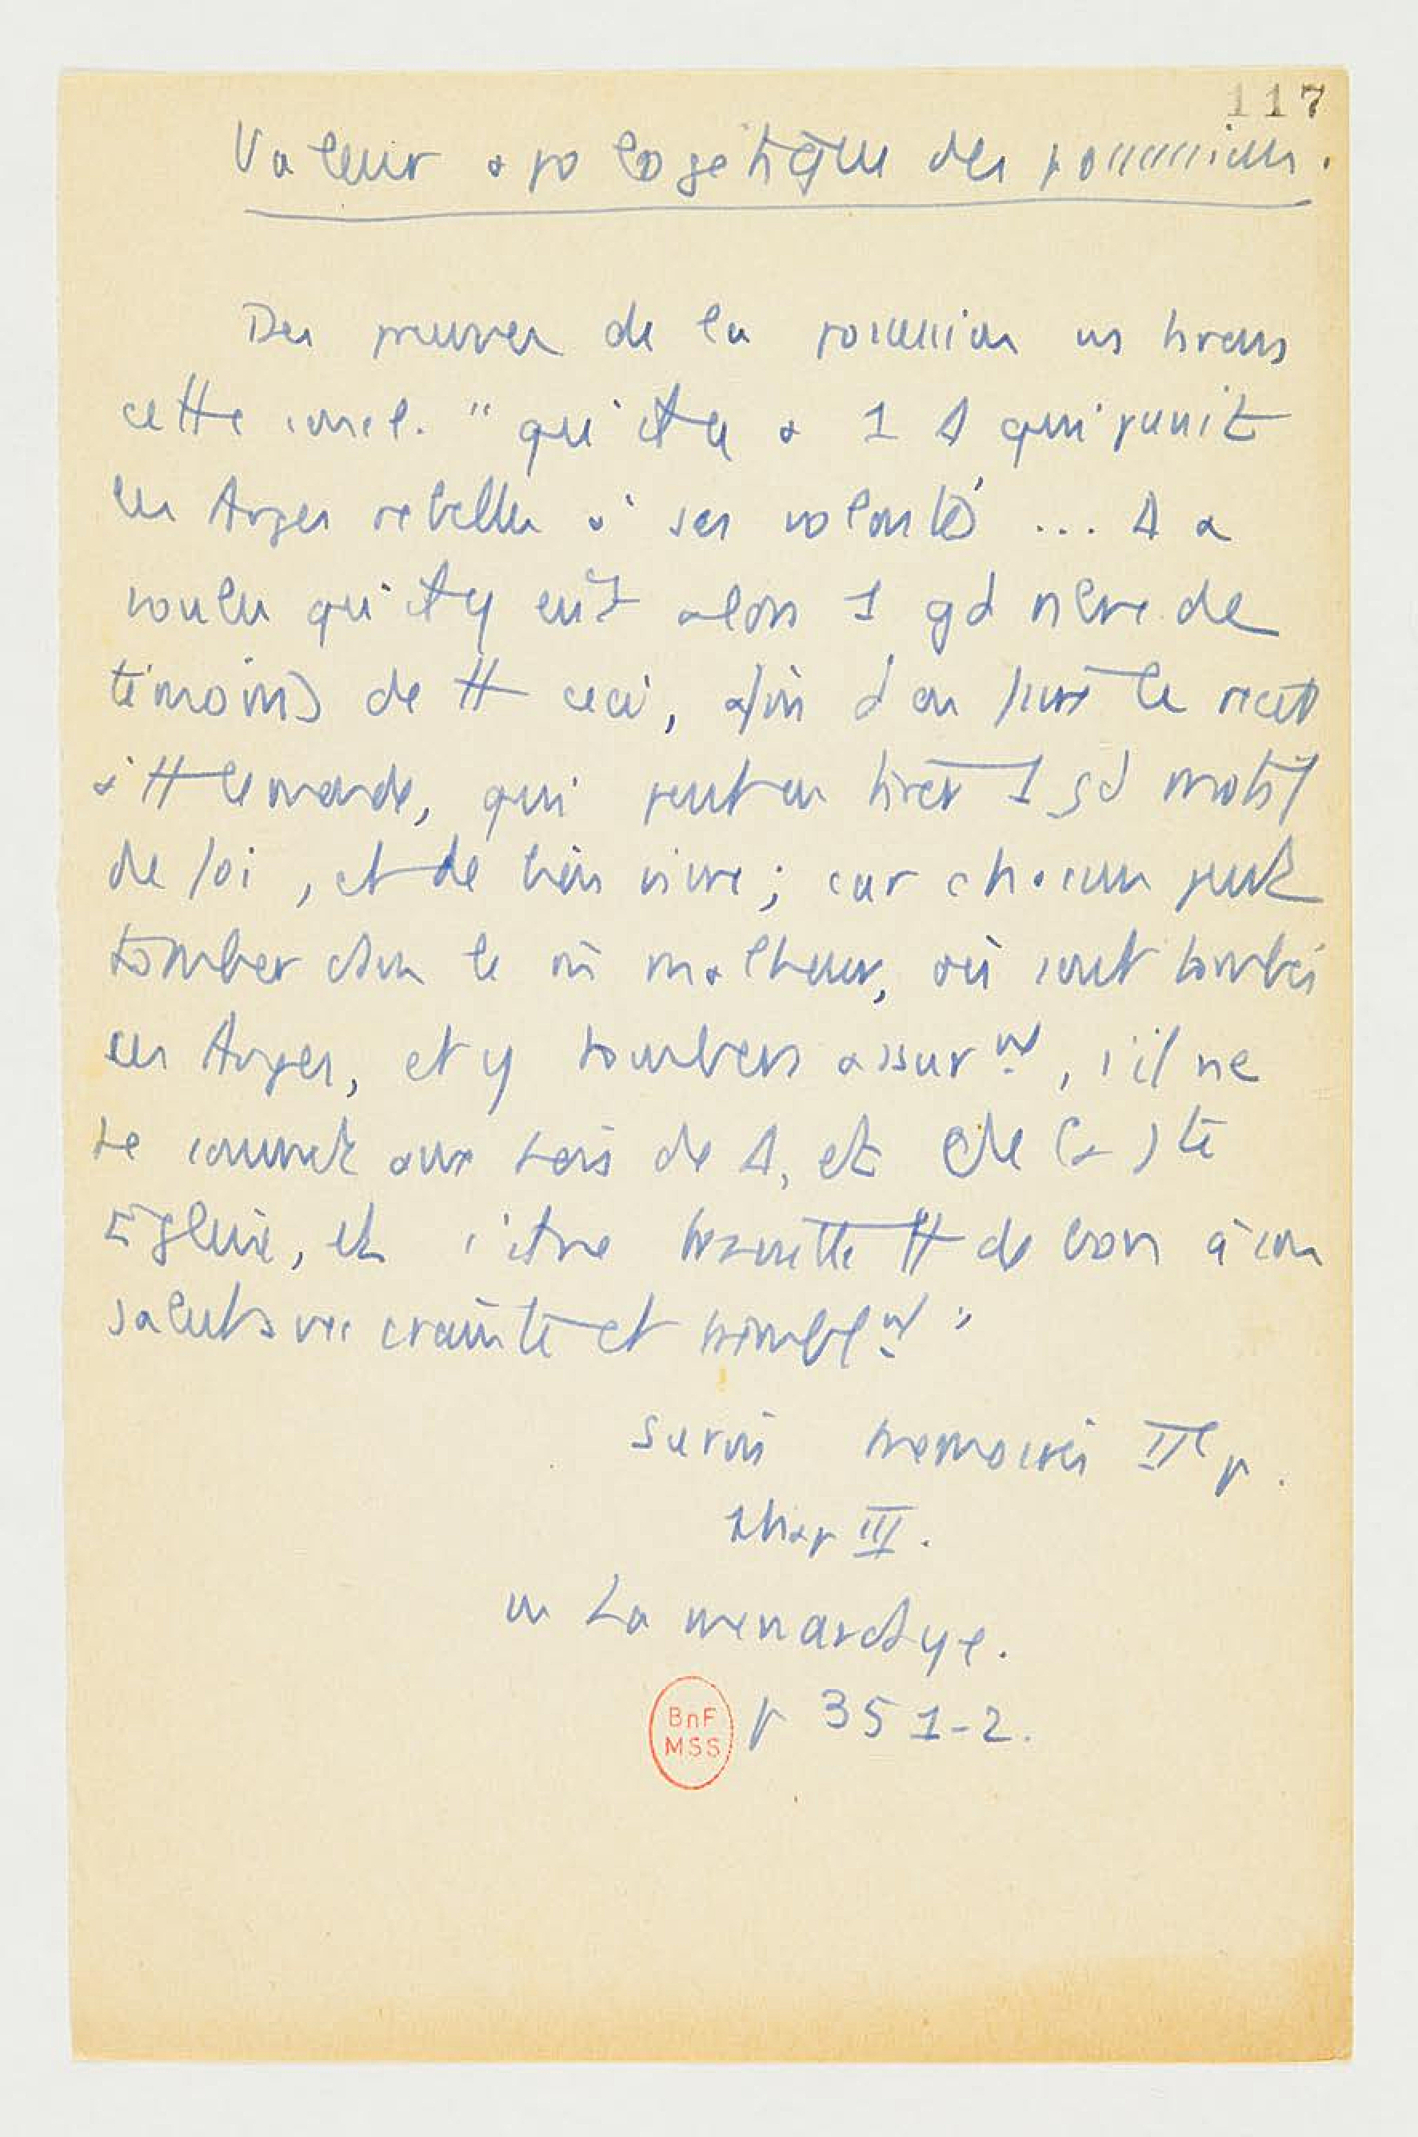 117
Valeur apologétique des possessions.
Des preuves de la possession us tirons
cette concl. "qu'il y a 1 Δ qui punit
les Anges rebelles à ses volontés ... Δ a
voulu qu'il y eut alors 1 gd nbre de
témoins de tt ceci, afin d'en faire le récit
à tt le monde, qui peut en tirer 1 gd motif
de foi, et de bien vivre ; car chacun peut
tomber dans le m̂ malheur, où sont tombés
les Anges, et y tombera assurnt, s'il ne
se soumet aux lois de Δ, et de (sa) ste
Eglise, et s'il ne tt de bon à son
salut avec crainte et tremblnt"
Surin IIe p.
chap III.
in La menardaye.
p 351-2.
BnF
MSS